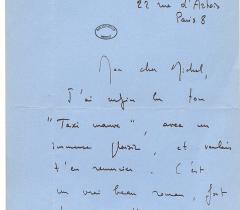 22 rue d'Artois
Paris 8
Mon cher Michel,
J'ai enfin lu ton
"Taxi mauve", avec un
immense plaisir, et voulais
t'en remercier. C'est
un vrai beau roman, fort